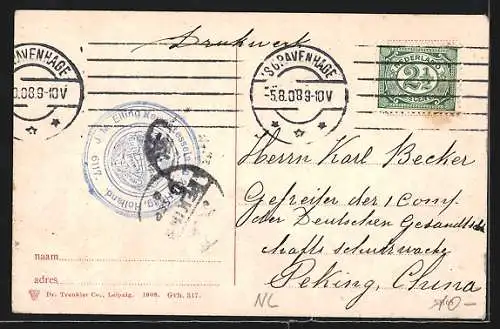 Drukwerk
'SGRAVENHAGE
'SGRAVENHAGE
5.8.08 9-10V
.08 9-10V
NEDERLAND
2½
CENT
Holland.
Herrn Karl Becker
Gefreiter der 1 Comp.
der Deutschen Gesandt
schafts schutzwache
Peking, China
naam
adres
Dr. Trenkler Co., Leipzig. 1908. Gvh. 317.
NL
10-